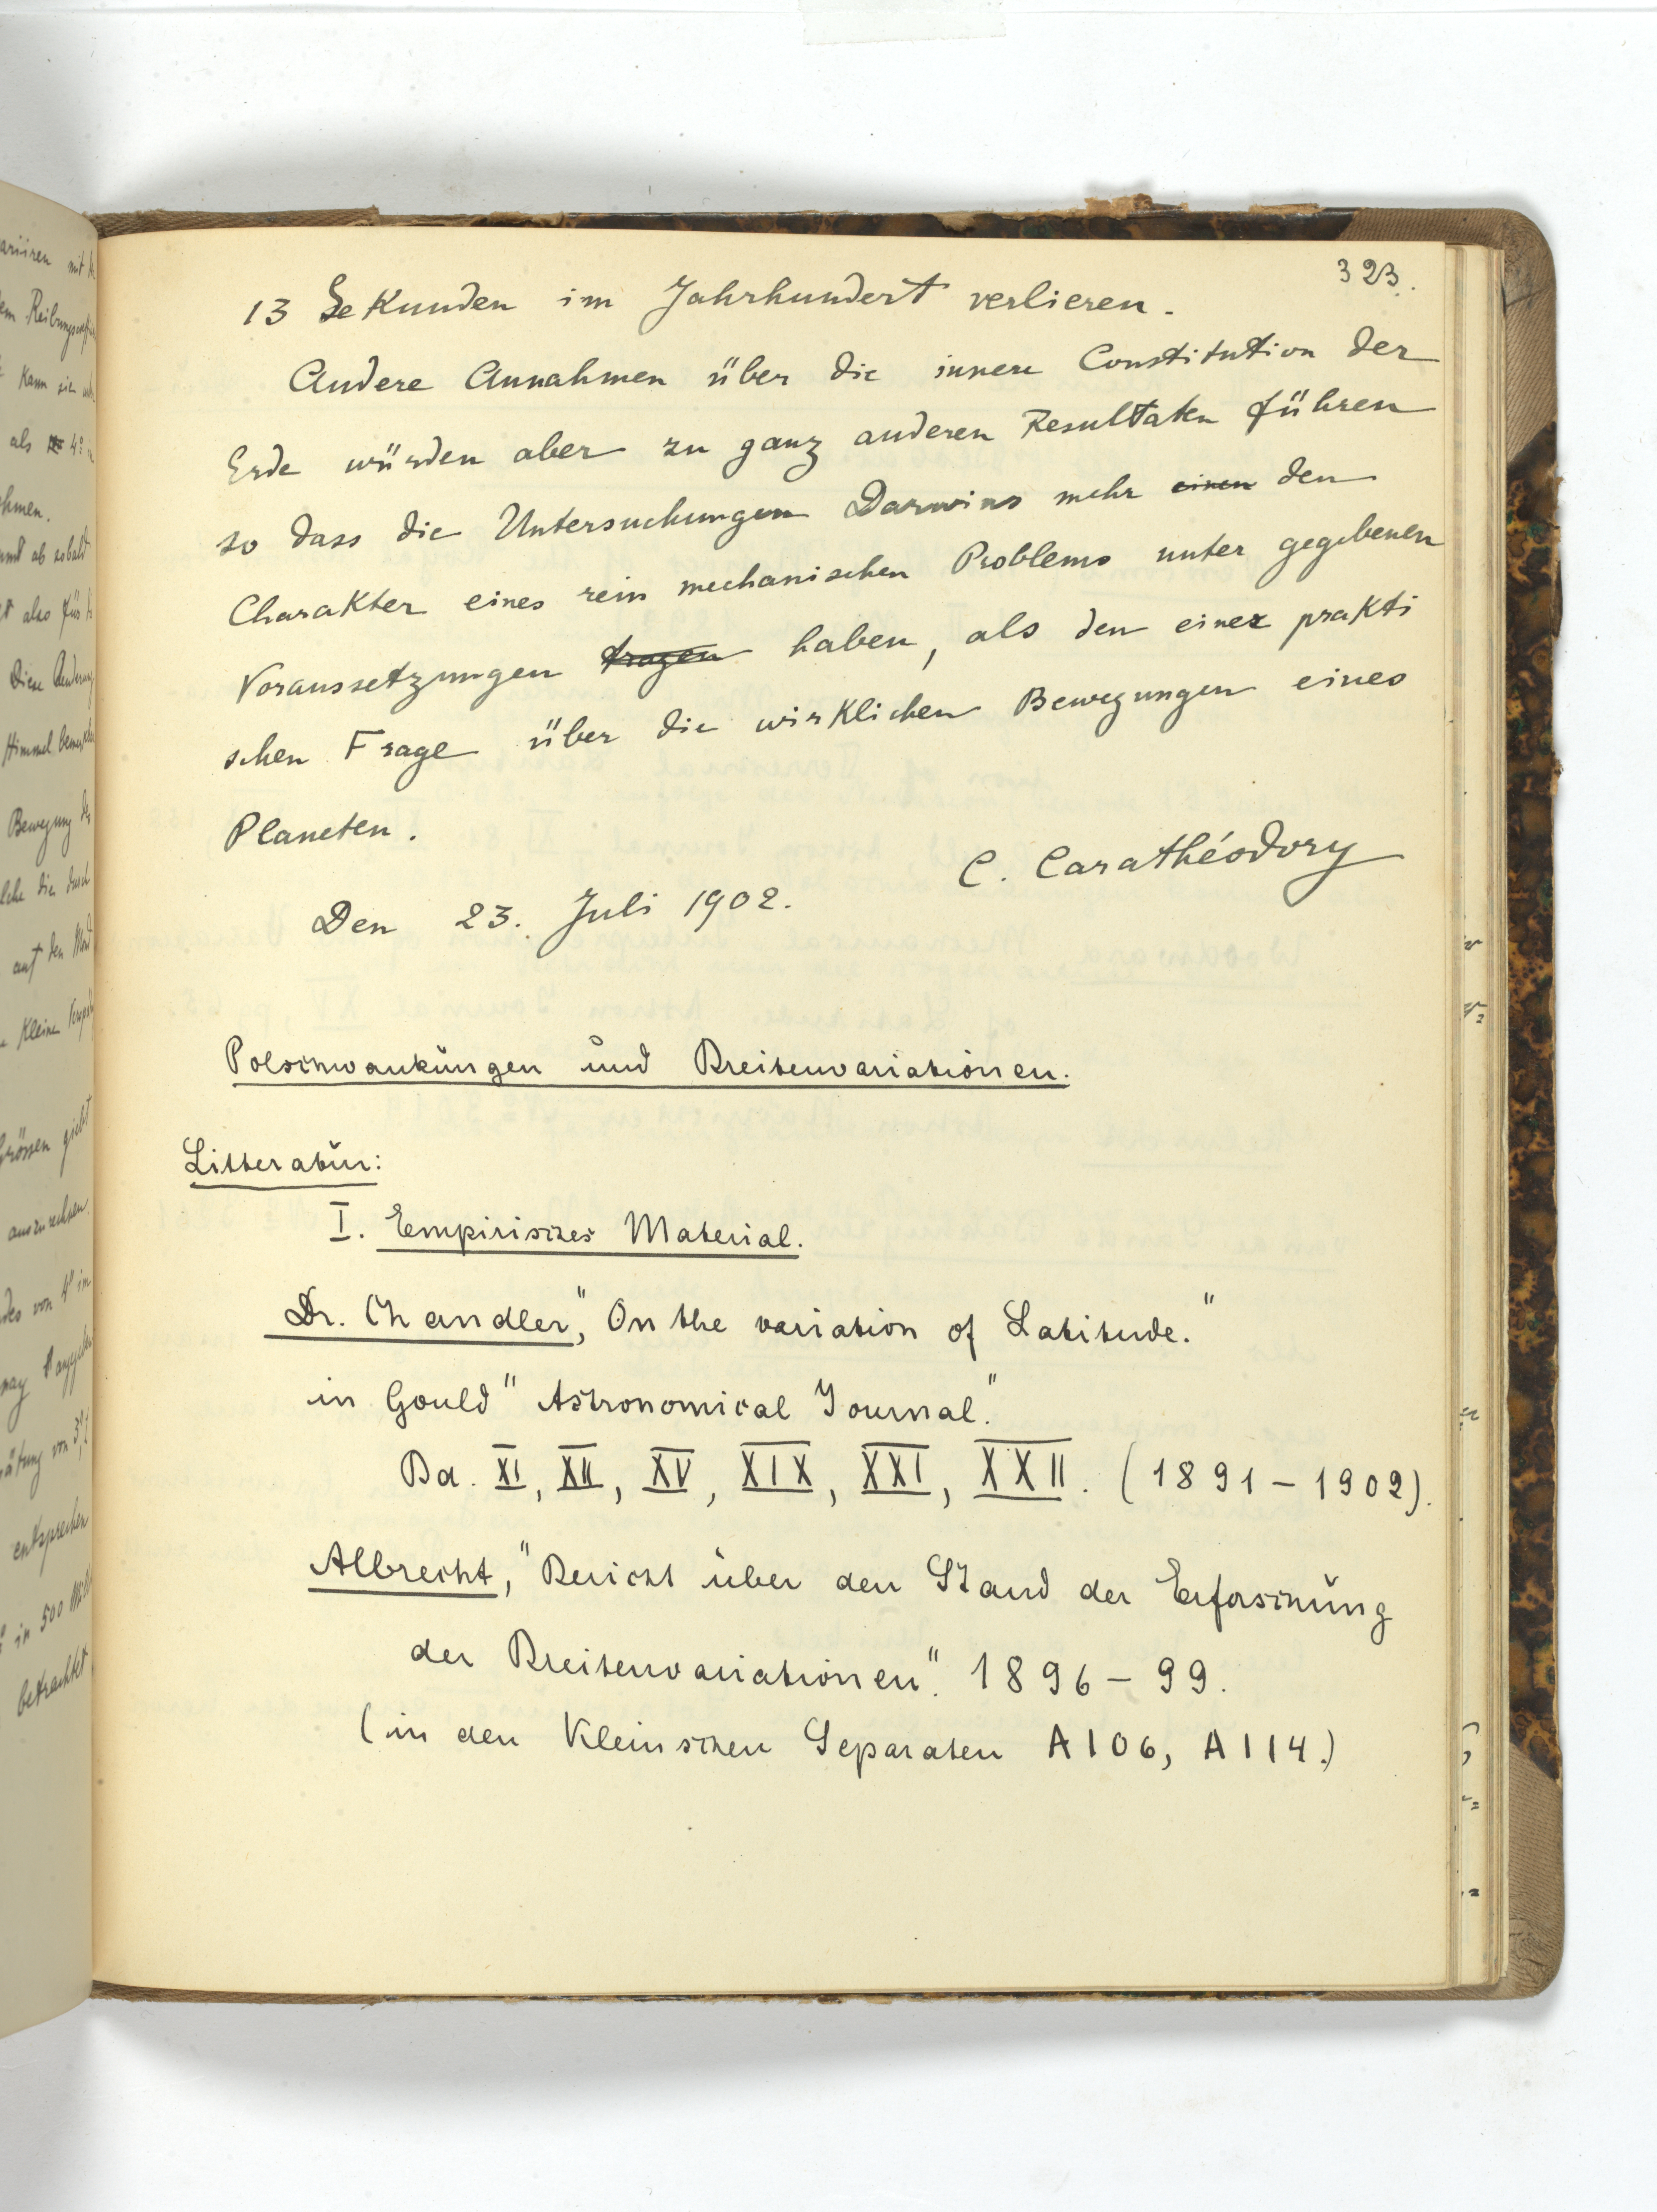 323.
13 Sekunden im Jahrhundert verlieren.
Andere Annahmen über die innere Constitution der
Erde würden aber zu ganz anderen Resultaten führen
so dass die Untersuchungen Darwins mehr einen den
Charakter eines rein mechanischen Problems unter gegebenen
Voraussetzungen tragen haben, als den einer prakti
schen Frage über die wirklichen Bewegungen eines
Planeten.
C. Carathéodory
Den 23. Juli 1902.
Polschwankungen und Breitenvariationen.
Litteratur:
I. Empirisches Material.
Dr. Chandler, "On the variation of Latitude."
in Gould "Astronomical Journal."
Bd. XI, XII, XV, XIX, XXI, XXII. (1891-1902).
Albrecht, "Bericht über den Stand der Erforschung
der Breitenvariationen". 1896-99.
(in den Kleinschen Separaten A106, A114.)